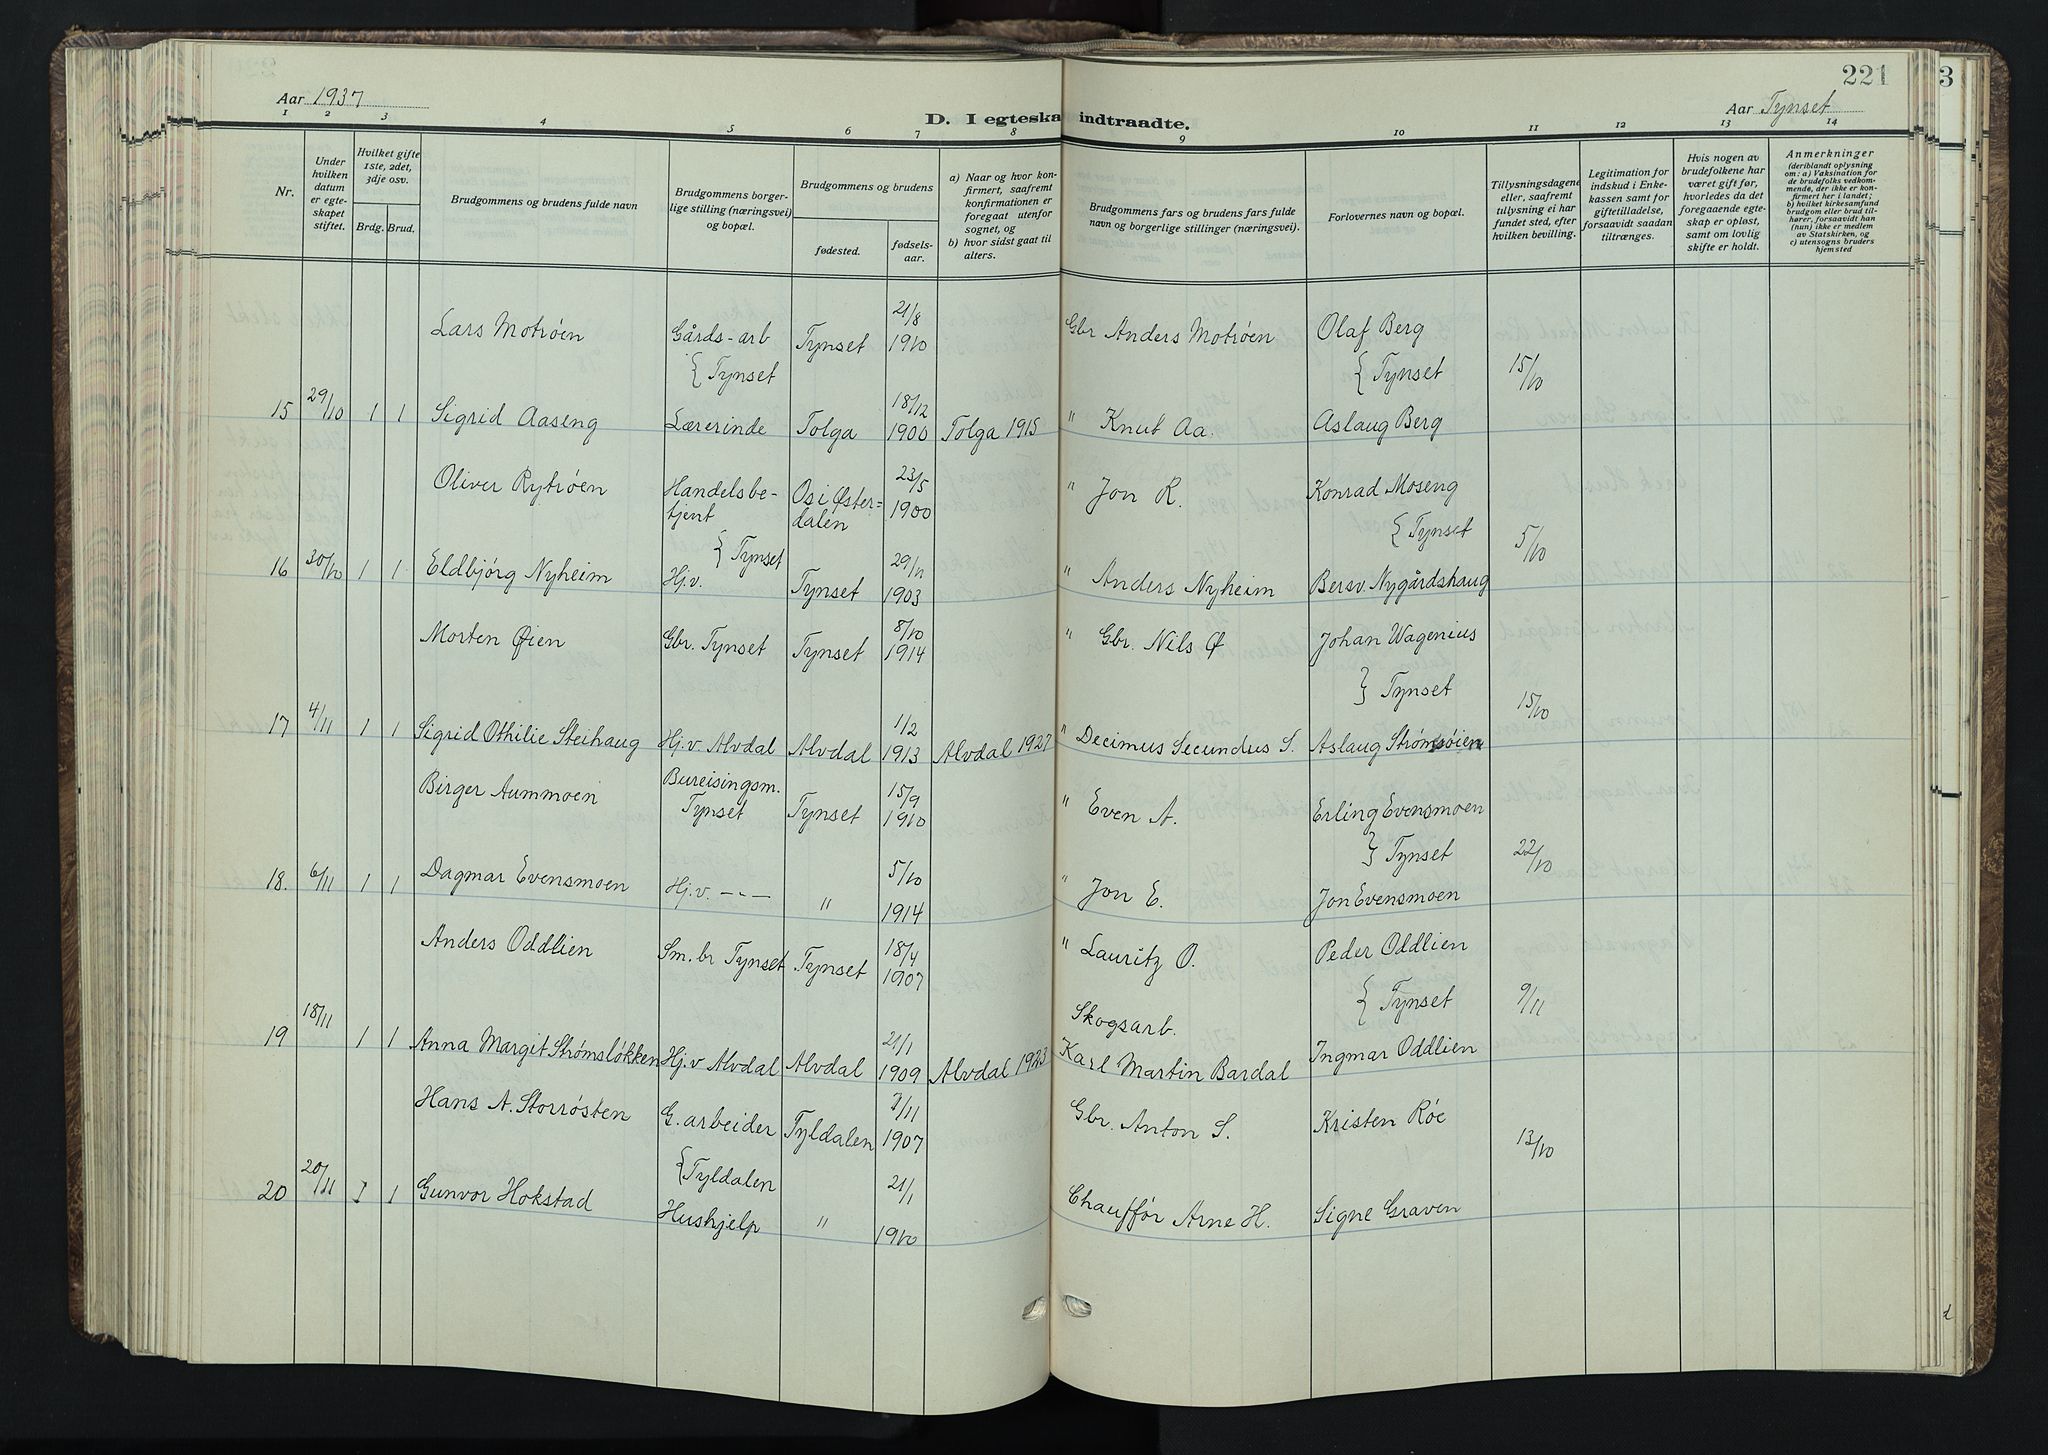 Aar 1937
D. I egteskab indtraadte.
221
3
Aar Tynset
1 2 3 4 5 6 7 8 9 10 11 12 13 14
Nr.
Under hvilken datum er egteskapet stiftet.
Hvilket gifte 1ste, 2det, 3dje osv.
Brdg. Brud.
Brudgommens og brudens fulde navn
Brudgommens borgerlige stilling (næringsvei) og bopæl.
Brudgommens og brudens
fødested.
fødselsaar.
a) Naar og hvor konfirmert, saafremt konfirmationen er foregaat utenfor sognet, og
b) hvor sidst gaat til alters.
Brudgommens fars og brudens fars fulde navn og borgerlige stillinger (næringsvei).
Forlovernes navn og bopæl.
Tillysningsdagene eller, saafremt tillysning ei har fundet sted, efter hvilken bevilling.
Legitimation for indskud i Enkekassen samt for giftetilladelse, forsaavidt saadan tiltrænges.
Hvis nogen av brudefolkene har været gift før, hvorledes da det foregaaende egteskap er opløst, samt om lovlig skifte er holdt.
Anmerkninger
(deriblandt oplysning om: a) Vaksination for de brudefolks vedkommende, der ikke er konfirmert her i landet; b) hvilket kirkesamfund brudgom eller brud tilhører, forsaavidt han (hun) ikke er medlem av Statskirken, og c) utensogns bruders hjemsted
Lars Motrøen Gårds-arb Tynset 21/8 1910 Gbr Anders Motrøen Olaf Berg
{ Tynset { Tynset 15/10
15 29/10 1 1 Sigrid Aaseng Lærerinde Tolga 18/12 1900 Tolga 1915 " Knut Aa. Aslaug Berg
Oliver Rytrøen Handelsbetjent Os i Østerdalen 23/5 1900 " Jon R. Konrad Moseng
{ Tynset { Tynset 5/10
16 30/10 1 1 Eldbjørg Nyheim Hj.v. Tynset 29/11 1903 " Anders Nyheim Bersv. Nygårdshaug
Morten Øien Gbr. Tynset Tynset 8/10 1914 " Gbr. Nils Ø Johan Wagenius
} Tynset 15/10
17 4/11 1 1 Sigrid Othilie Steihaug Hj.v Alvdal Alvdal 1/2 1913 Alvdal 1927 " Decimus Secundus S. Aslaug Strømsøien
Birger Aummoen Bureisingsm. Tynset Tynset 15/9 1910 " Even A. Erling Evensmoen
} Tynset 22/10
18. 6/11 1 1 Dagmar Evensmoen Hj.v. --- " 5/10 1914 " Jon E. Jon Evensmoen
Anders Oddlien Sm.br Tynset Tynset 18/4 1907 " Lauritz O. Peder Oddlien
{ Tynset 9/11
19 18/11 1 1 Anna Margit Strømsløkken Hj.v Alvdal Alvdal 21/1 1909 Alvdal 1923 Skogsarb. Karl Martin Bardal Ingmar Oddlien
Hans A. Storrøsten G. arbeider Tyldalen 7/11 1907 Gbr. Anton S. Kristen Røe
{ Tyldalen 13/10
20 20/11 1 1 Gunvor Hokstad Hushjelp " 21/1 1910 Chauffør Arne H. Signe Graven